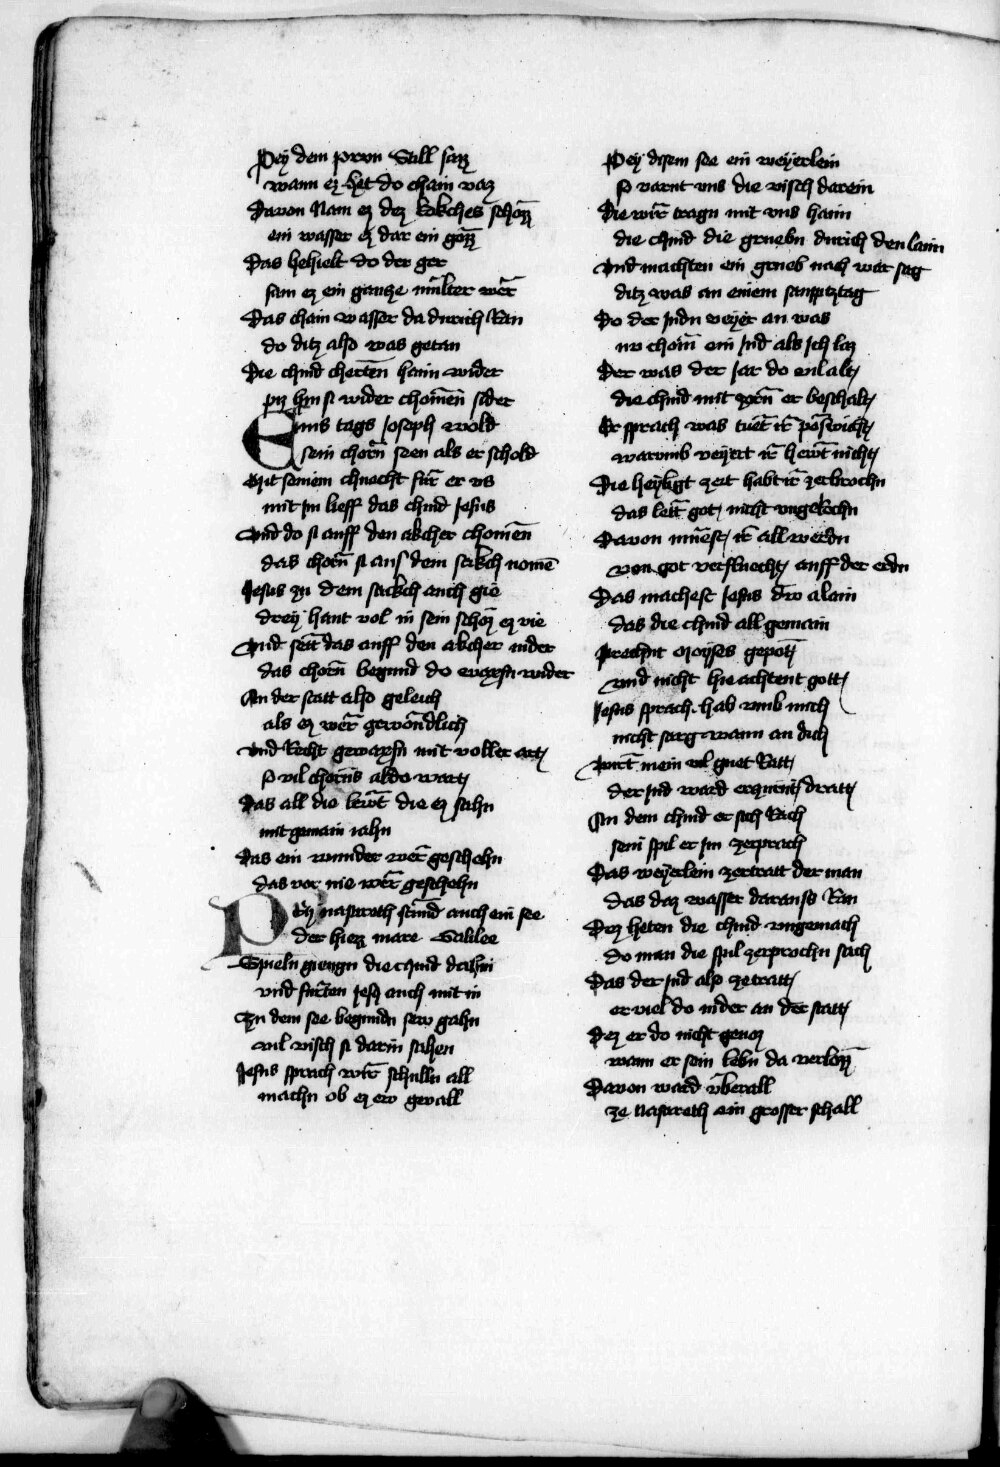 Pey dem prvn Still sazz
wann ez het do chain vaz
Davon Nam ez dez kokches schözz
ein wasser ez dar ein gözz
Das behielt do der ger
sam ez ein gantze mülter wër
Das chain wasser da durich Ran
do ditz also was getan
Die chind chertn̄ haim wider
piz hin si wider chomen̄ sider
Eins tags Joseph wold
sein chorn̄ seen als er schold
Mit seinem chnecht für er us
mit Jm lieff das chind Jesus
Vnd do si auff den akcher chomen̄
das chorn̄ si aus dem sakch nomē
Jesus zu dem sackch auch gie
drey hant vol in sein schoz ez vie
Vnd sett das auff den akcher nider
das chorn̄ begund do waxsn wider
An der statt also geleich
als ez wër gewöndlich
Vnd Recht gewaxsn mit voller art
so vil chorns aldo wart
Das all die lewt die ez sahn
mit gemain iahn
Das ein wunder wër geschehn
das vor nie wër geschehn
Pey nasareth stünd auch ein see
der hiezz mare Galilee
Spieln giengn die chind dahin
vnd fürten Jesū auch mit in
Zu dem see begundn sew gahn
vil visch si darin sahen
Jesus sprach wir schulln all
machn ob ez ew gevall
Pey disem see ein weyerlein
so varnt vns die visch darein
Die wir tragn mit vns haim
die chind die gruebn durich den laim
Vnd machten ein grueb nach wär sag
ditz was an einem sampztag
Do der Judn veyer an was
nv chom̄ ein Jud als ich laz
Der was der Jar do vil alt
die chind mit zorn̄ er beschalt
Er sprach was tuet ir pöswicht
warumb veyert ir hewt nicht
Die heyligt zeit habt ir zerbrochn
das lett got nicht vngelochn
Davon müest ir all werdn
von got verfluecht auff der erdn
Das machest Jesus dw alain
das die chind all gemain
Prechnt Moyses gepott
vnd nicht hie achtent gott
Jesus sprach hab vmb mich
nicht sarg wann an dich
Wirt mein vil guet Ratt
der Jud ward erzurnt dratt
An dem chind er sich Rach
sein spil er Jm zerprach
Das weyerlein zertratt der man
das daz wasser daraus Ran
Dez heten die chind vngemach
do man die spil zerprochn sach
Das der Jud also zetratt
er viel do nider an der statt
Dez er do nicht genoz
wann er sein lebn da verlozz
Davon ward vberall
ze nasareth ain grosser schall